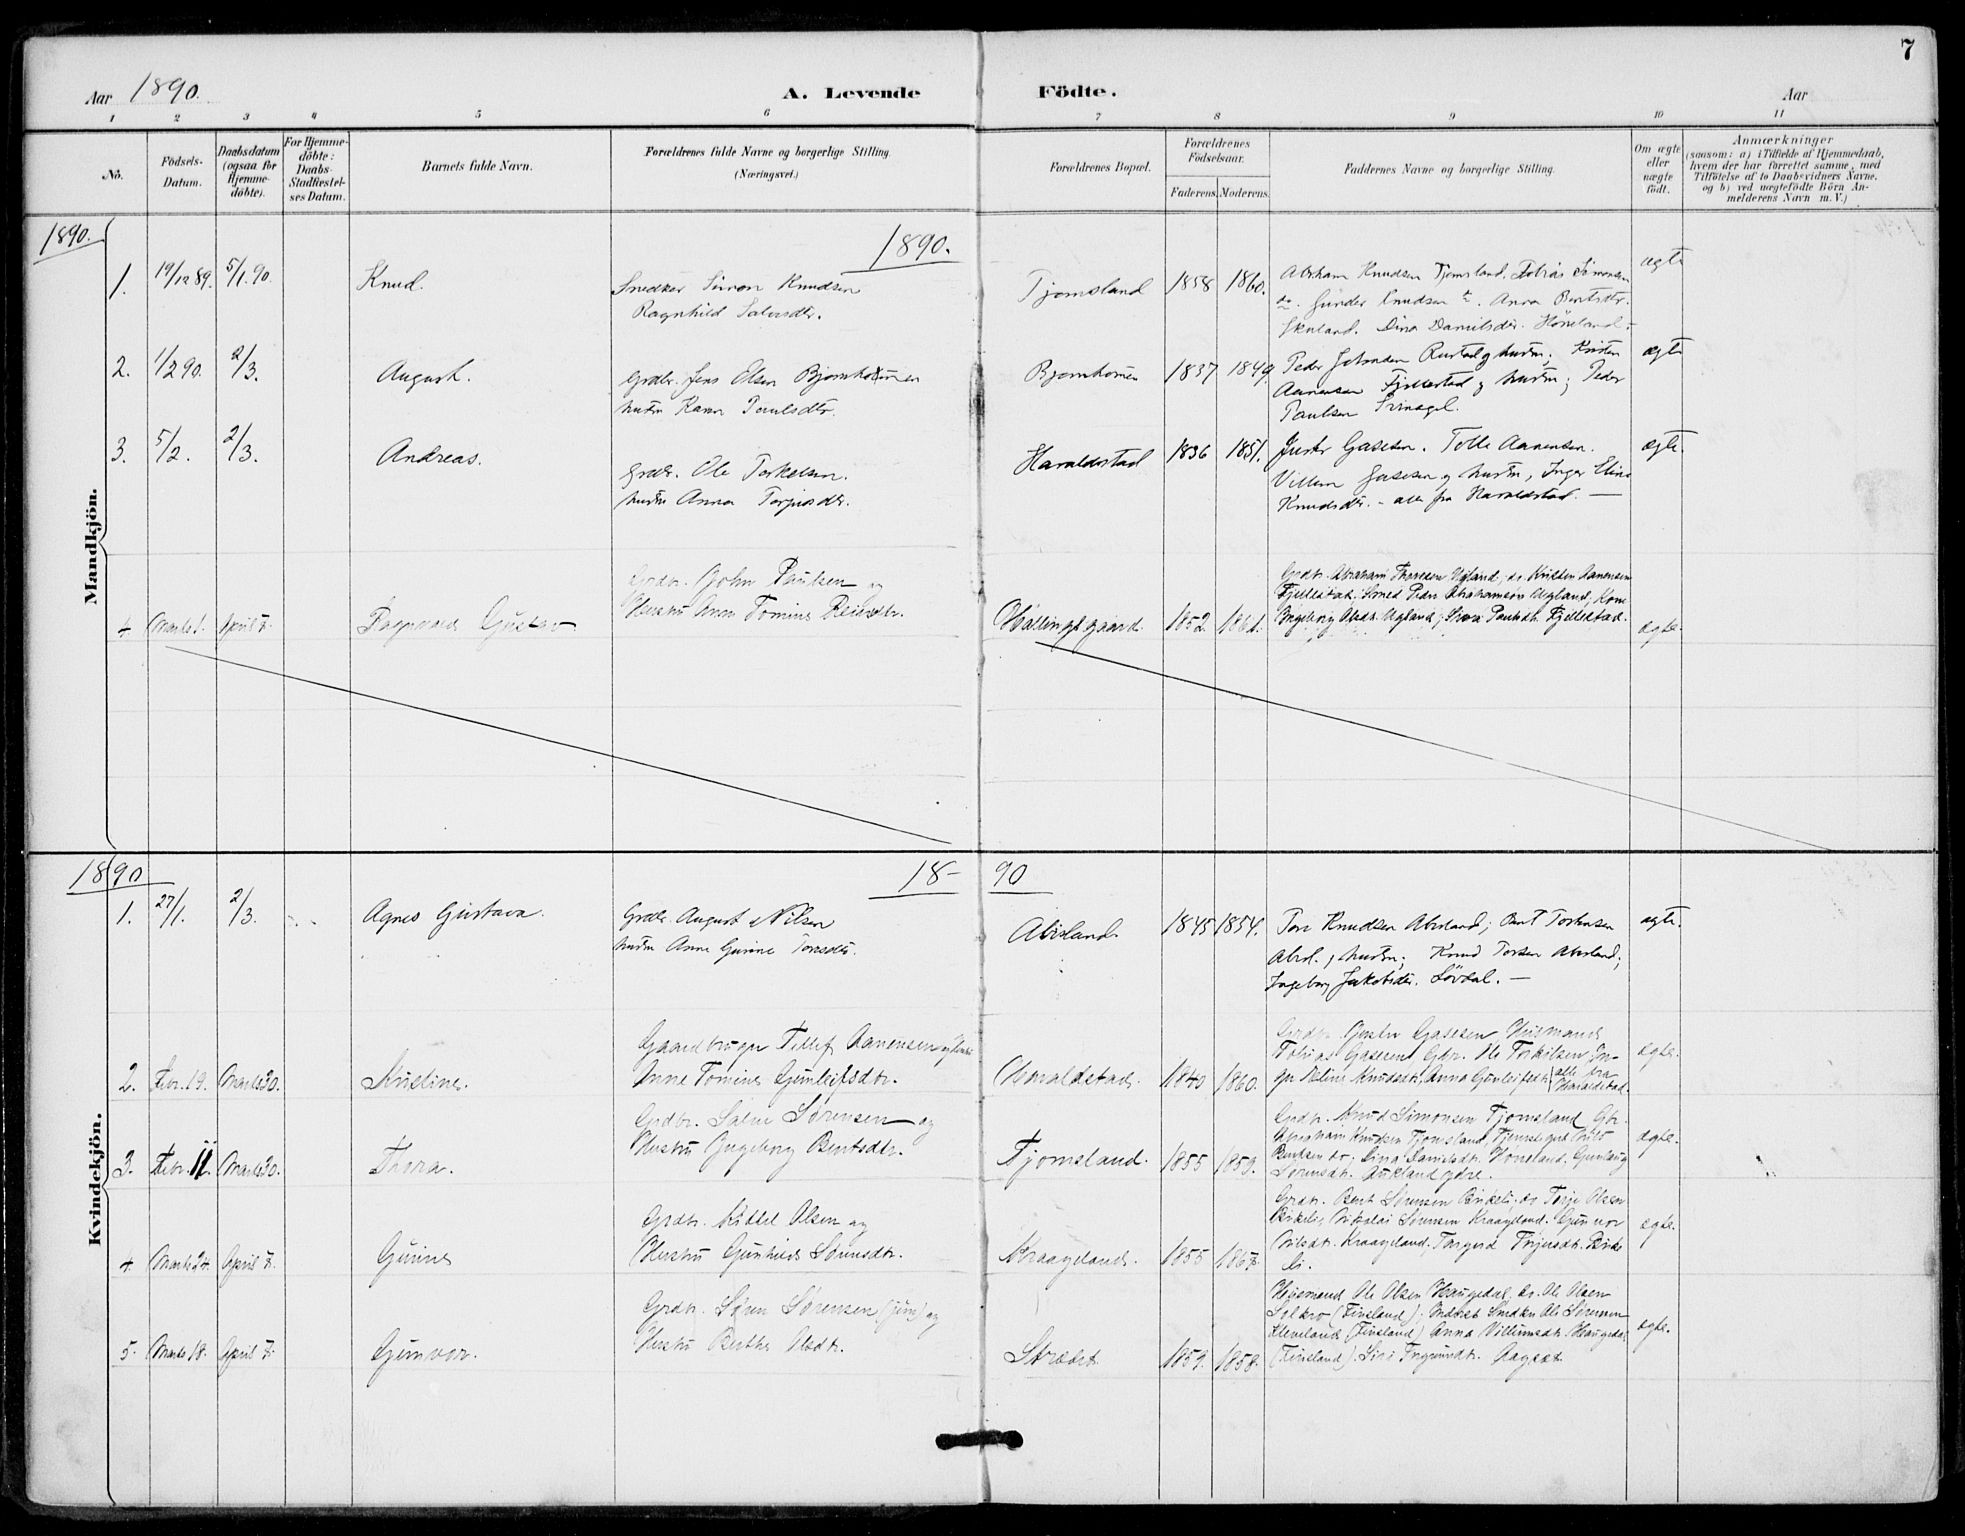 7
Aar 1890. A. Levende Födte. Aar
1 2 3 4 5 6 7 8 9 10 11
No.
Födsels-
Datum.
Daabsdatum
(ogsaa for
Hjemme-
döbte).
For Hjemme-
döbte:
Daabs-
Stadfæstel-
ses Datum.
Barnets fulde Navn.
Forældrenes fulde Navne og borgerlige Stilling.
(Næringsvei.)
Forældrenes Bopæl.
Forældrenes
Födselsaar.
Faderens. Moderens.
Faddernes Navne og borgerlige Stilling.
Om ægte
eller
uægte
födt.
Anmærkninger
(saasom: a) i Tilfælde af Hjemmedaab,
hvem der har forrettet samme, med
Tilföielse af to Daabsvidners Navne,
og b) ved uægtefödte Börn An-
melderens Navn m. V.)
Mandkjön.
1890. 1890.
1. 19/12 89. 5/1. 90. Knud.
Snedker Simon Knudsen
Ragnhild Salvesdtr.
Tjomsland 1858 1860.
Abraham Knudsen Tjomsland. Tobias Simonsen
do. Gunder Knudsen do. Anna Bentsdtr.
Skuland. Dina Danielsdtr. Høneland.
ægte
2. 1/2 90. 2/3. August.
Grdbr. Jens Olsen Bjornkomen
hustru Karen Paulsdtr.
Bjornkomen 1837 1849.
Peder Johnsen Rustad og hustru; Kristen
Aanensen Fjellestad og hustru; Peder
Paulsen
ægte
3. 5/2. 2/3. Andreas.
Grdbr. Ole Torkelsen.
hustru Anna Torjusdtr.
Haraldstad 1836 1851.
Juster Gasesen. Tolle Aanensen.
Villum Gasesen og hustru, Inger Eline
Knudsdtr. - alle fra Haraldstad. —
ægte.
4. Marts 1. April 7. Dagvard Gustav
Grdbr. John Paulsen og
Hustru Anne Tomine Reiersdtr.
Hallingsgaard. 1852. 1861.
Grdbr. Abraham Thoresen Ugland, do. Kristen Aanensen
Fjellestad. Smed Peder Abrahamson Ugland, Kone
Ingeborg Olsdt. Ugland; Paulsdt. Fjellestad.
ægte.
Kvindekjön.
1890 18- 90
1. 27/1. 2/3. Agnes Gustava.
Grdbr. August Nilsen
hustru Anne Gurine Toresdtr.
Abisland 1845 1854.
Tore Knudsen Abisland; Bent Torkensen
Abisl. og hustru; Knud Torsen Abisland;
Ingeborg Jakobsdtr. Løvdal. —
ægte.
2. Febr. 19. Marts 30. Kristine.
Gaardbruger Tellef Aanensen og Hustru
Anne Tomine Gunleifsdtr.
Haraldstad. 1840 1860.
Grdbr. Juster Gasesen Husmand
Tobias Gasesen, Gbr. Ole Torkilsen, In-
ger Keline Knudsdt, Anna Gunleifsdt, alle fra
Haraldstad.
ægte.
3. Febr. 11. Marts 30. Thora.
Grdbr. Salve Sørensen og
Hustru Ingeborg Bentsdtr.
Tjomsland. 1855 1859.
Grdbr. Knud Simonsen Tjomsland Gbr.
Abraham Knudsen Tjomsland, Tjenestegut Nils
Bentsen do; Dina Danielsdt. Høneland. Gunlaug
Sørensdt. Aukland ydre.
ægte.
4. Marts 24. April 7. Gurine
Grdbr. Kittel Olsen og
Hustru Gunhild Sørensdtr.
Kraageland. 1855 1867.
Grdbr. Bent Sørensen Birkeli, do Torje Olsen
Birkeli, Nikolai Sørensen Kraageland. Gunvor
Nilsdt. Kraageland. Torgerd Terjesdt. Birke
li.
ægte.
5. Marts 18. April 7. Gunvor.
Grdbr. Søren Sørensen (jun) og
Hustru Berthe Olsdt.
Stræbet 1859. 1858.
Husmand Ole Olsen Haugedal, do. Ole Olsen
Solkro (Finsland); Snedker Ole Sørensen
Kleveland (Finsland) Anna Villumsdt. Haugedal
(Finsland). Siri Aagset
ægte.